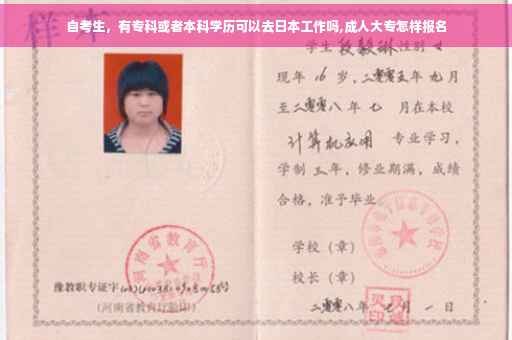 自考生，有专科或者本科学历可以去日本工作吗,成人大专怎样报名
样本
学生 段毅琳 性别 女
现年 16 岁，二零零五年 九月
至二零零八年 七 月在本校
计算机应用 专业学习，
学制 三 年，修业期满，成绩
合格，准予毕业。
学校（章）
校长（章）
二零零八年 月 一 日
河南省教育厅
豫教职专证字
（河南省教育厅验印）